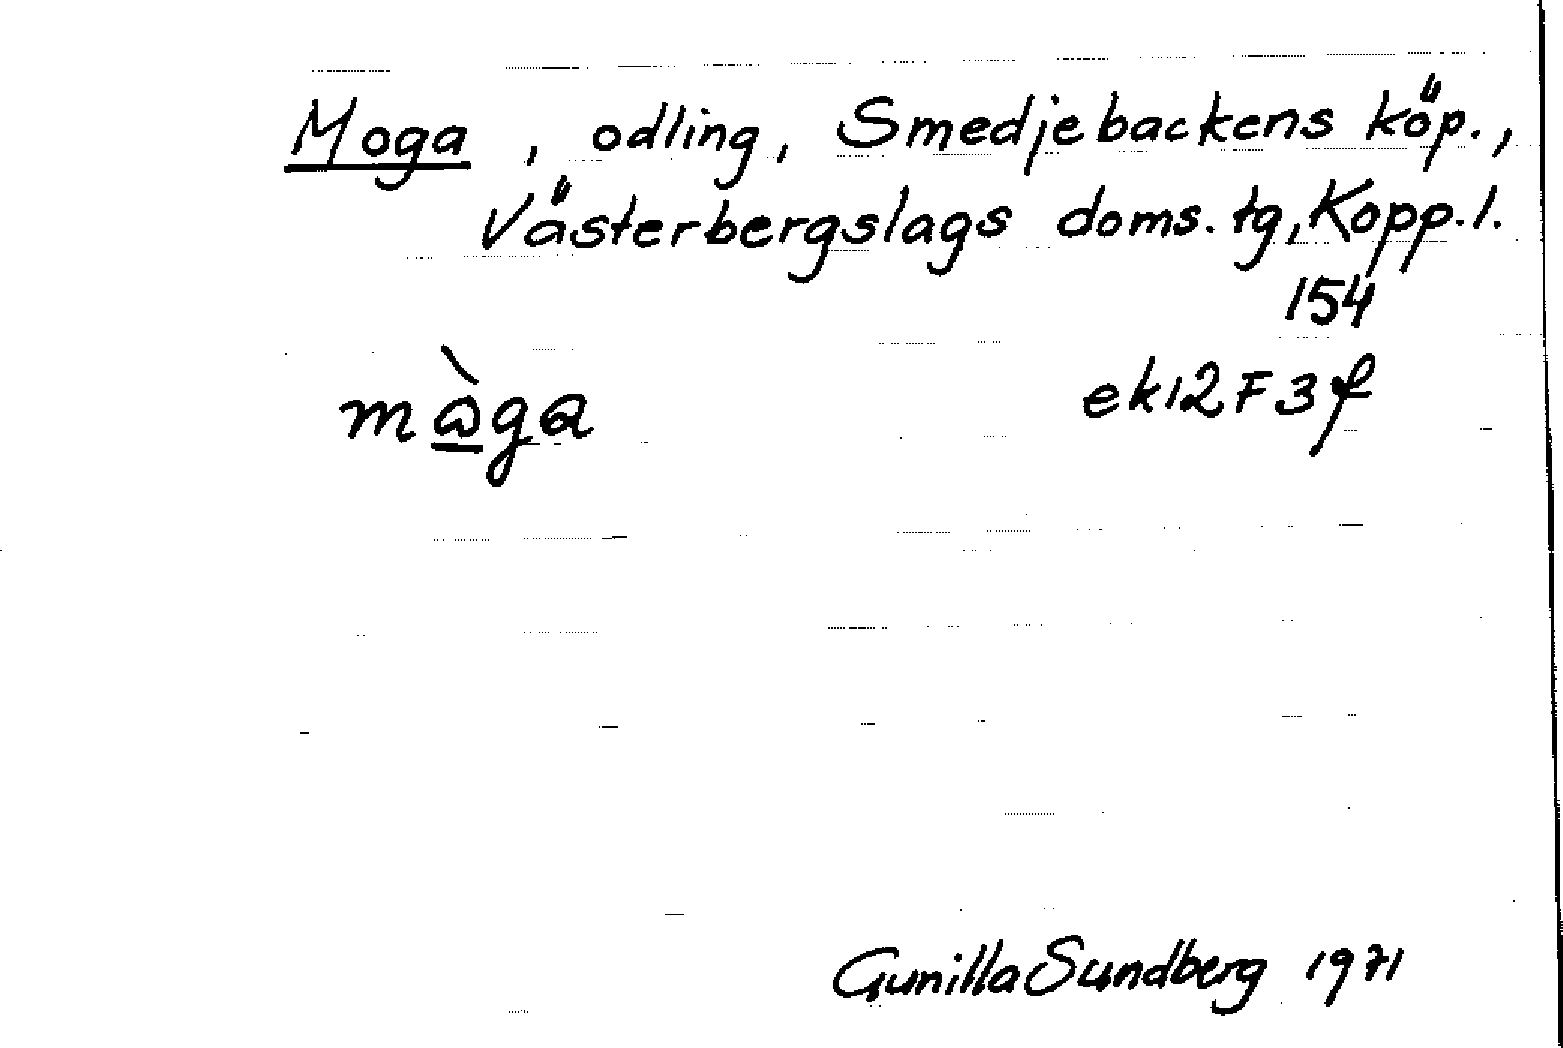 Moga, odling, Smedjebackens köp.,
Västerbergslags doms. tg, Kopp. l.
154
màga ek 12 F 3 f
Gunilla Sundberg 1971